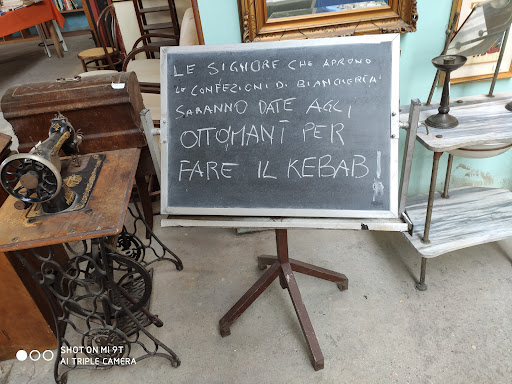 LE SIGNORE CHE APRONO
LE CONFEZIONI DI BIANCHERIA
SARANNO DATE AGLI
OTTOMANI PER
FARE IL KEBAB!
SHOT ON MI 9T
AI TRIPLE CAMERA